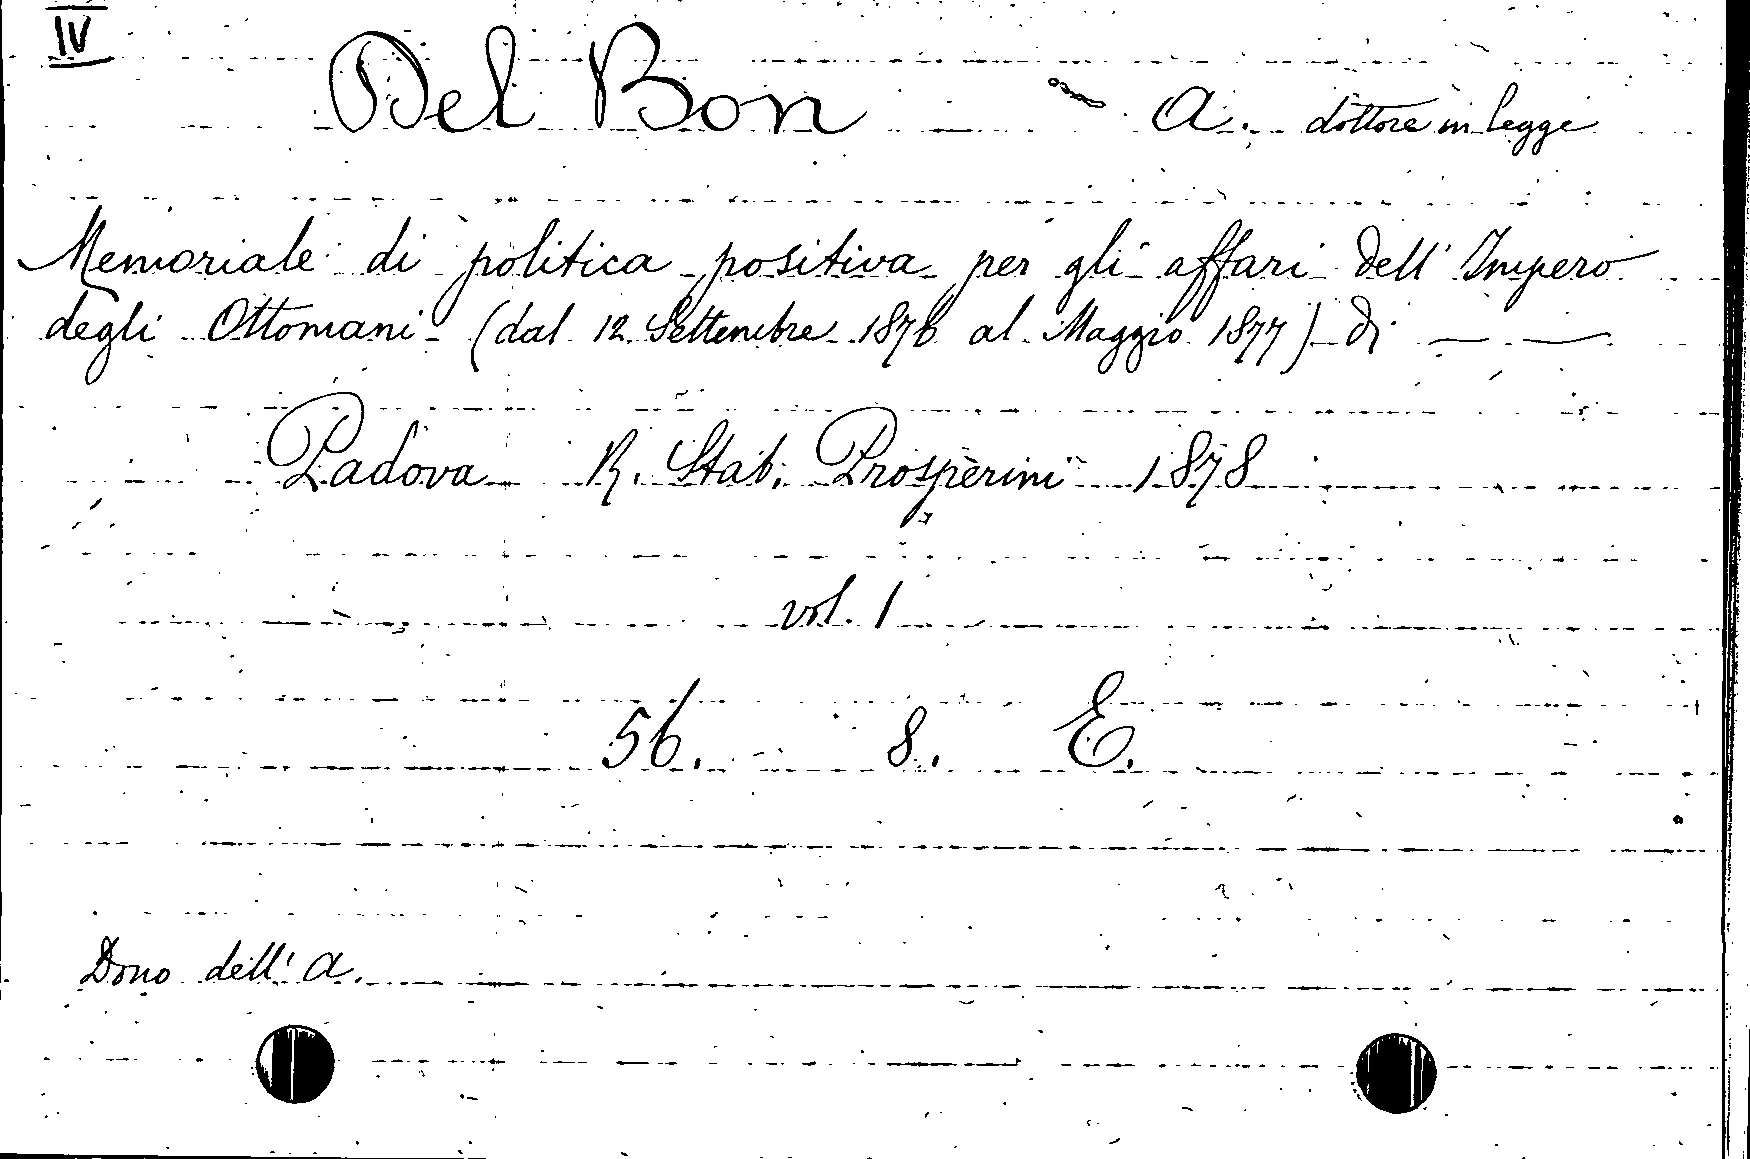 IV
Del Bon A. dottore in legge
Memoriale di politica positiva per gli affari dell' Impero
degli Ottomani (dal 12 Settembre 1876 al Maggio 1877) di — —
Padova R. Stab. Prosperini 1878
vol. 1
56. 8. E.
Dono dell' A.